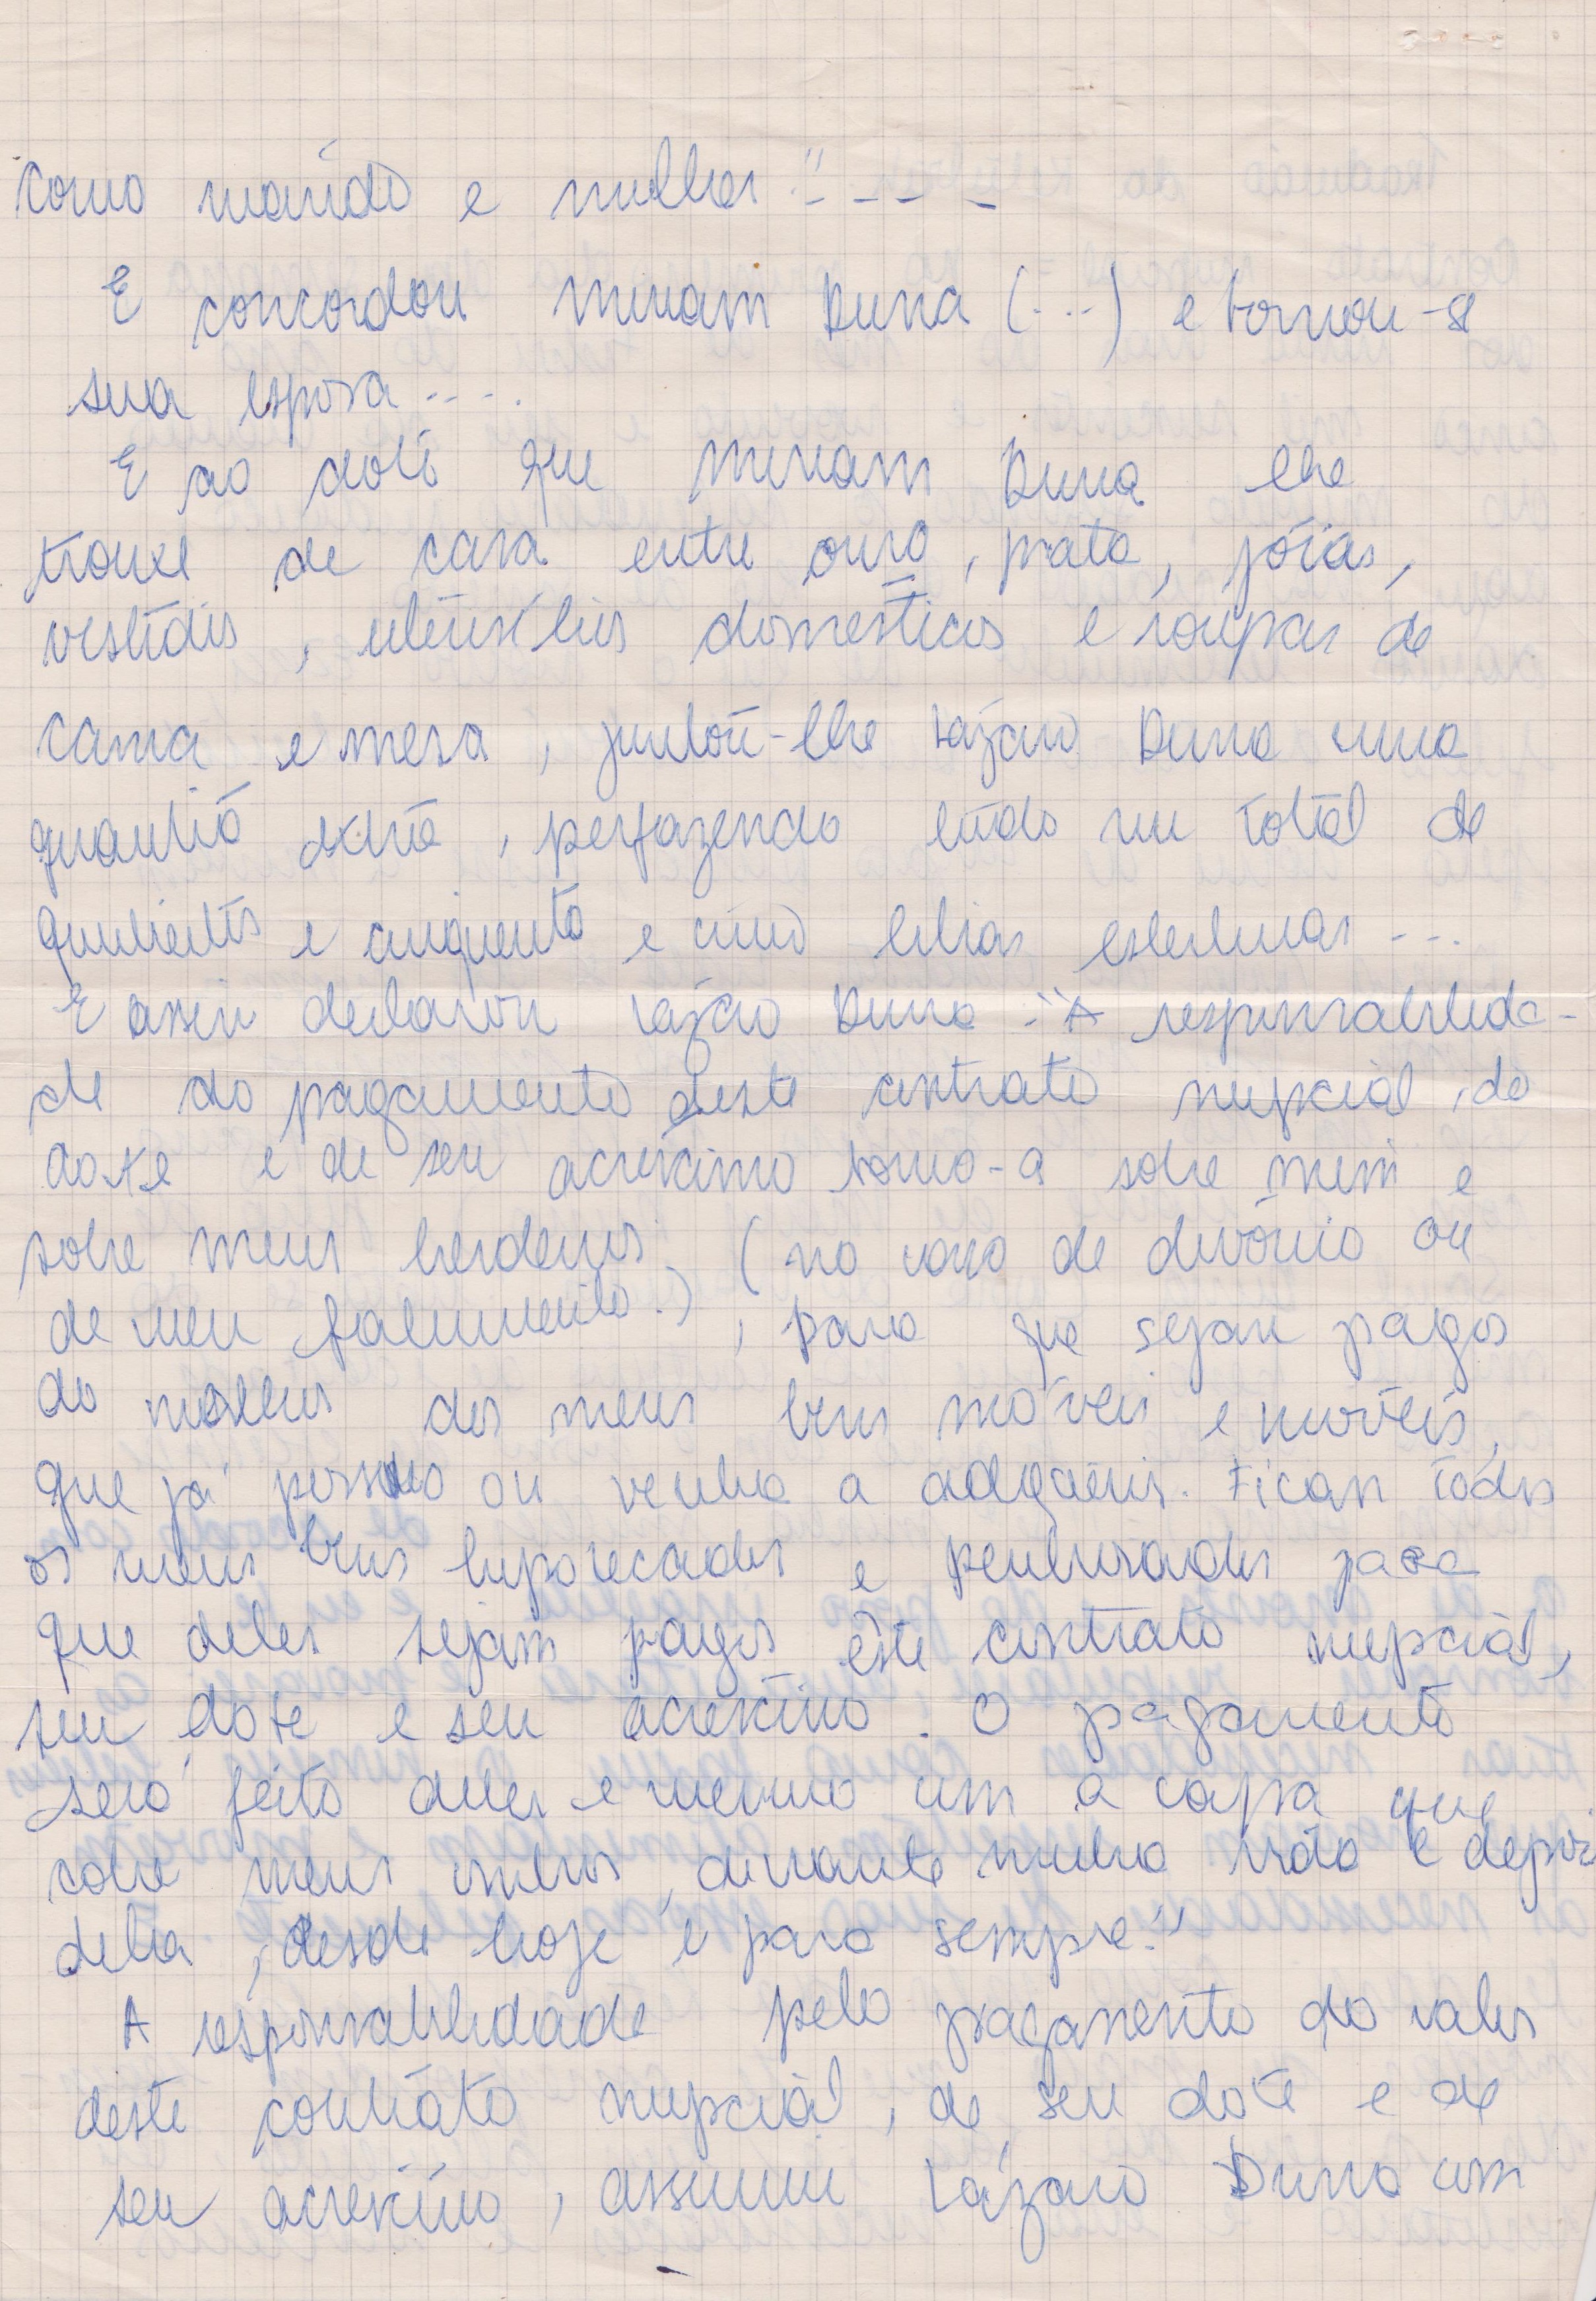 como marido e mulher." - - - -
E concordou Miriam Buna (...) e tornou-se
sua esposa ....
E ao dote que Miriam Buna lhe
trouxe de casa entre ouro, prata, jóias,
vestidos, utensílios domésticos e roupas de
cama e mesa, juntou-lhe Lázaro Buna uma
quantia extra, perfazendo tudo um total de
quinhentos e cinquenta e cinco libras esterlinas ...
E assim declarou Lázaro Buna : "A responsabilida-
de do pagamento deste contrato nupcial, do
dote e de seu acréscimo tomo-a sobre mim e
sobre meus herdeiros (no caso de divórcio ou
de meu falecimento.), para que sejam pagos
do melhor dos meus bens móveis e imóveis,
que já possuo ou venha a adquirir. Ficam todos
os meus bens hipotecados e penhorados para
que deles sejam pagos este contrato nupcial,
seu dote e seu acréscimo. O pagamento
será feito deles e mesmo com a capa que
cobre meus ombros, durante minha vida e depois
dela, desde hoje e para sempre."
A responsabilidade pelo pagamento do valor
deste contrato nupcial, de seu dote e de
seu acréscimo, assumiu Lázaro Buna com